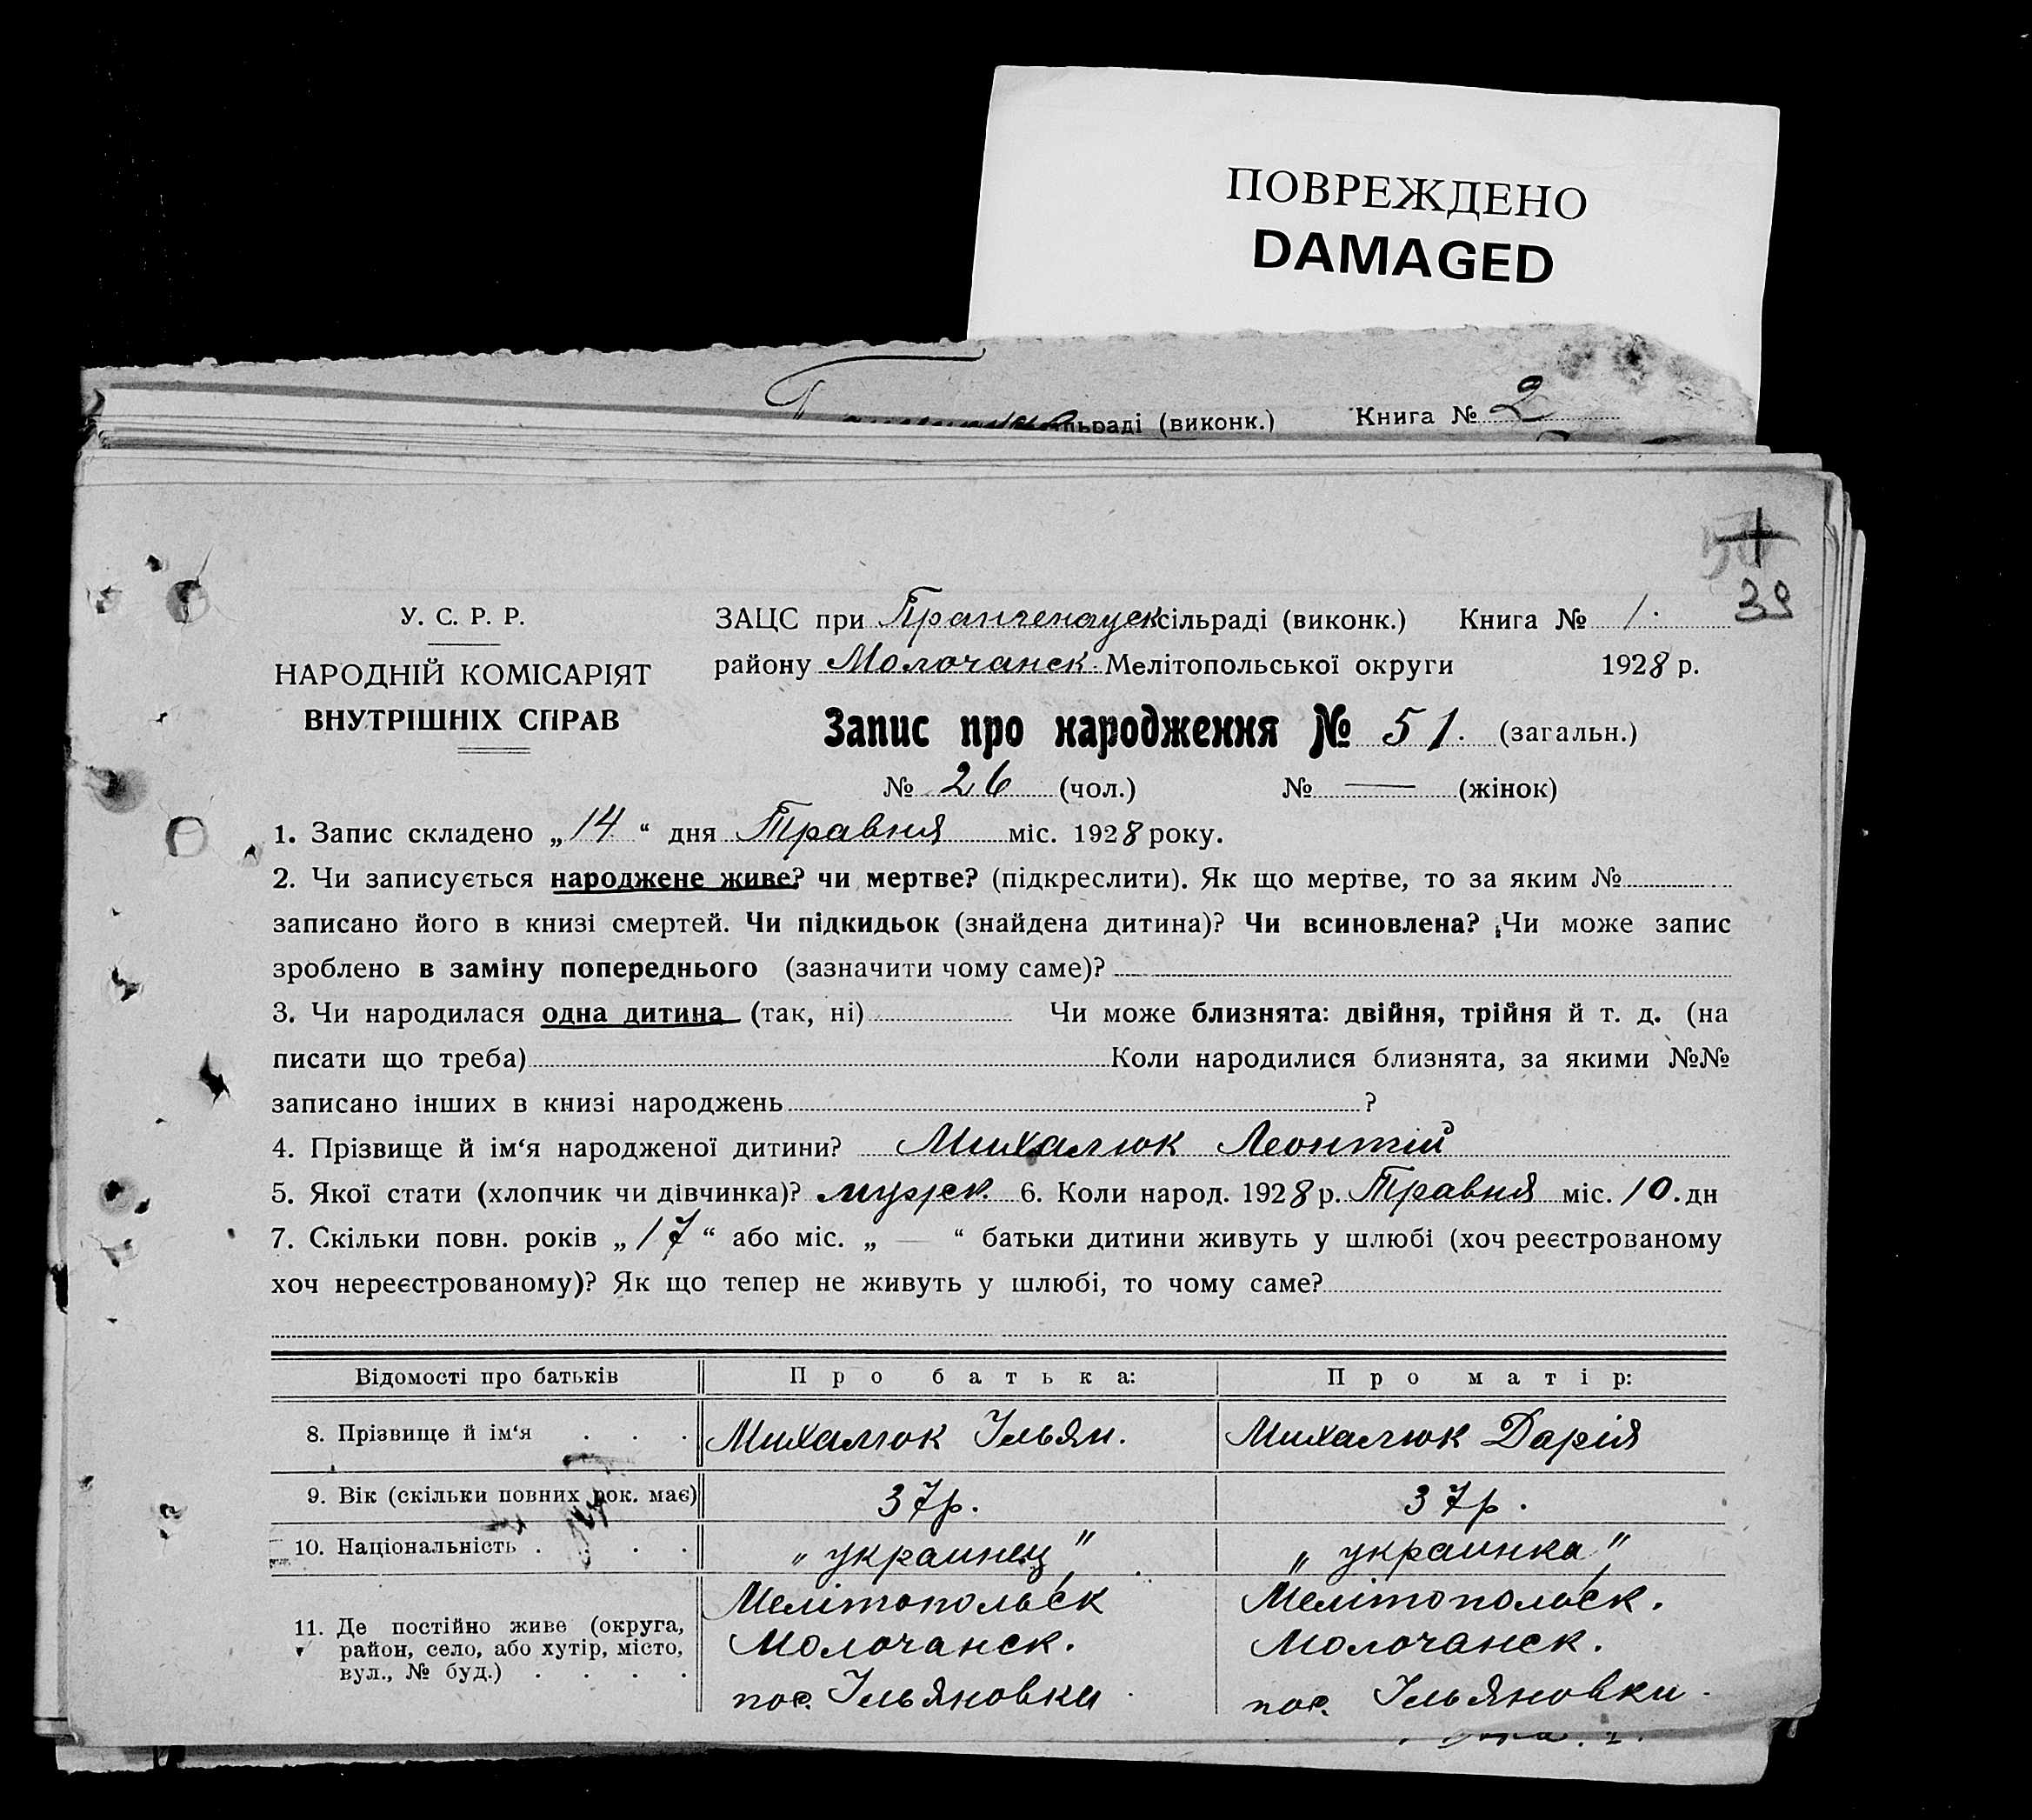 ПОВРЕЖДЕНО
DAMAGED
льраді (виконк.) Книга № 2
39
У. С. Р. Р.
НАРОДНІЙ КОМІСАРІЯТ
ВНУТРІШНІХ СПРАВ
ЗАЦС при сільраді (виконк.) Книга № 1.
району Молочанск. Мелітопольської округи 1928 р.
Запис про народження № 51. (загальн.)
№ 26 (чол.) № — (жінок)
1. Запис складено „14“ дня Травня міс. 1928 року.
2. Чи записується народжене живе? чи мертве? (підкреслити). Як що мертве, то за яким №
записано його в книзі смертей. Чи підкидьок (знайдена дитина)? Чи всиновлена? Чи може запис
зроблено в заміну попереднього (зазначити чому саме)?
3. Чи народилася одна дитина (так, ні) Чи може близнята: двійня, трійня й т. д. (на
писати що треба) Коли народилися близнята, за якими №№
записано інших в книзі народжень ?
4. Прізвище й ім‘я народженої дитини? Михалюк Леонтій
5. Якої стати (хлопчик чи дівчинка)? мужск. 6. Коли народ. 1928 р. Травня міс. 10. дн
7. Скільки повн. років „17“ або міс. „—“ батьки дитини живуть у шлюбі (хоч реєстрованому
хоч нереєстрованому)? Як що тепер не живуть у шлюбі, то чому саме?
Відомості про батьків Про батька: Про матір:
8. Прізвище й ім‘я . . . Михалюк Ільян. Михалюк Дарія
9. Вік (скільки повних рок. має) 37р. 37р.
10. Національність . . . . „украинец“ „украинка“
11. Де постійно живе (округа, район, село, або хутір, місто, вул., № буд.) . . . . Мелітопольск Мелітопольск.
Молочанск. Молочанск.
пос. Ільяновки пос. Ільяновки